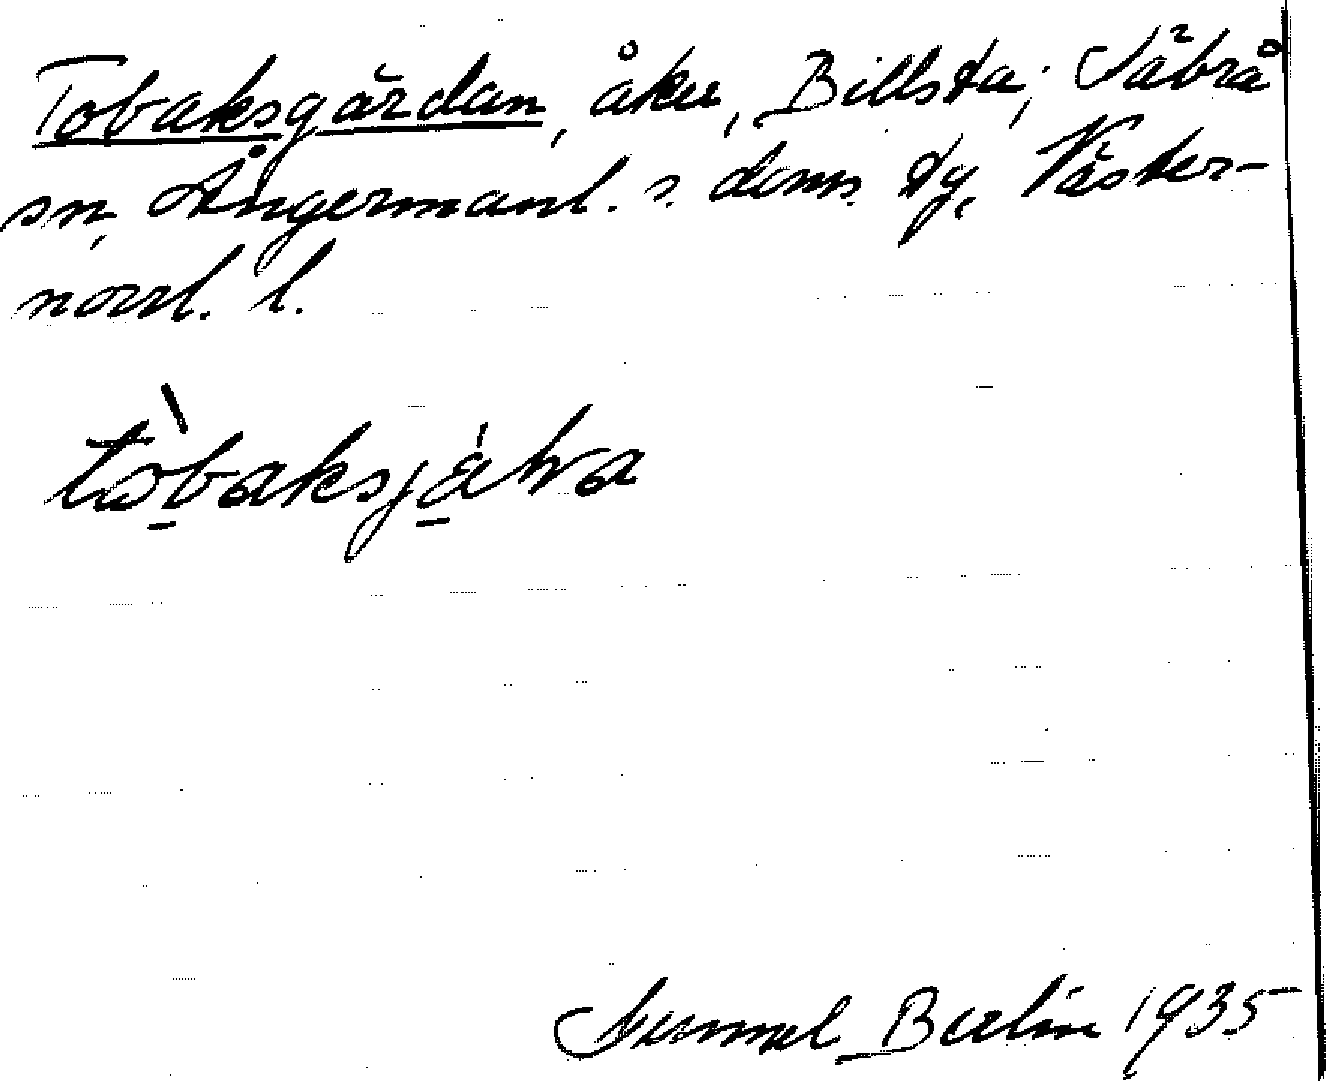 Tobaksgärdan, åker, Billsta; Säbrå
sn, Ångermanl. s. doms. tg, Väster-
norrl. l.
tòbaksjäḷa
Gunnel Berlin 1935